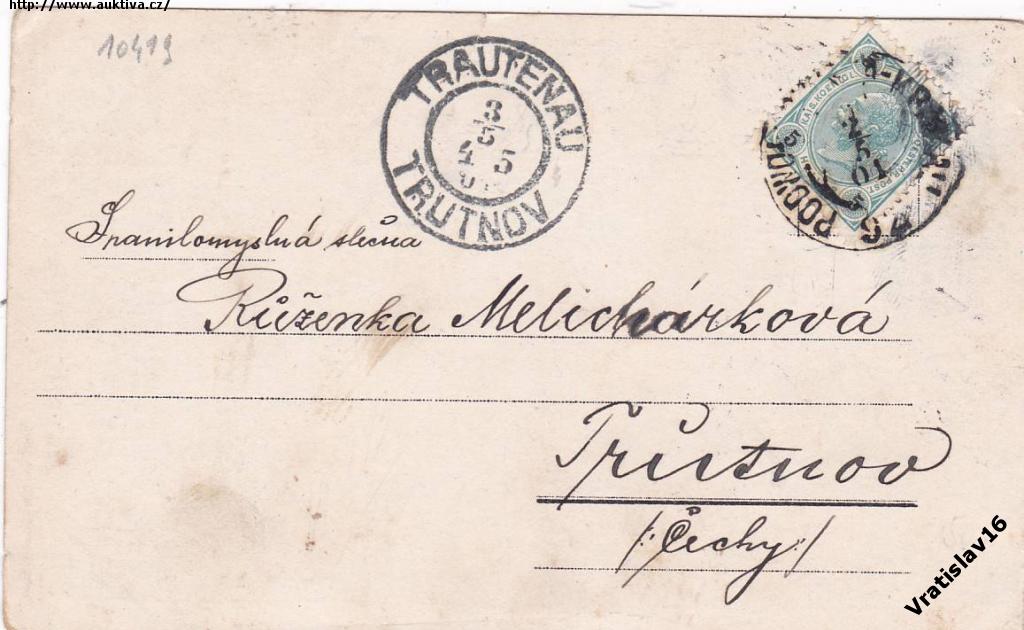 http://www.auktiva.cz/
10419
TRAUTENAU
3
5
4 5
TRUTNOV
KAIS. KOENIGL.
5 H
2
5
01
PODWO
94
Spanilomyslná slečna
Růženka Melichárková
Trutnov
/: Čechy :/
Vratislav16